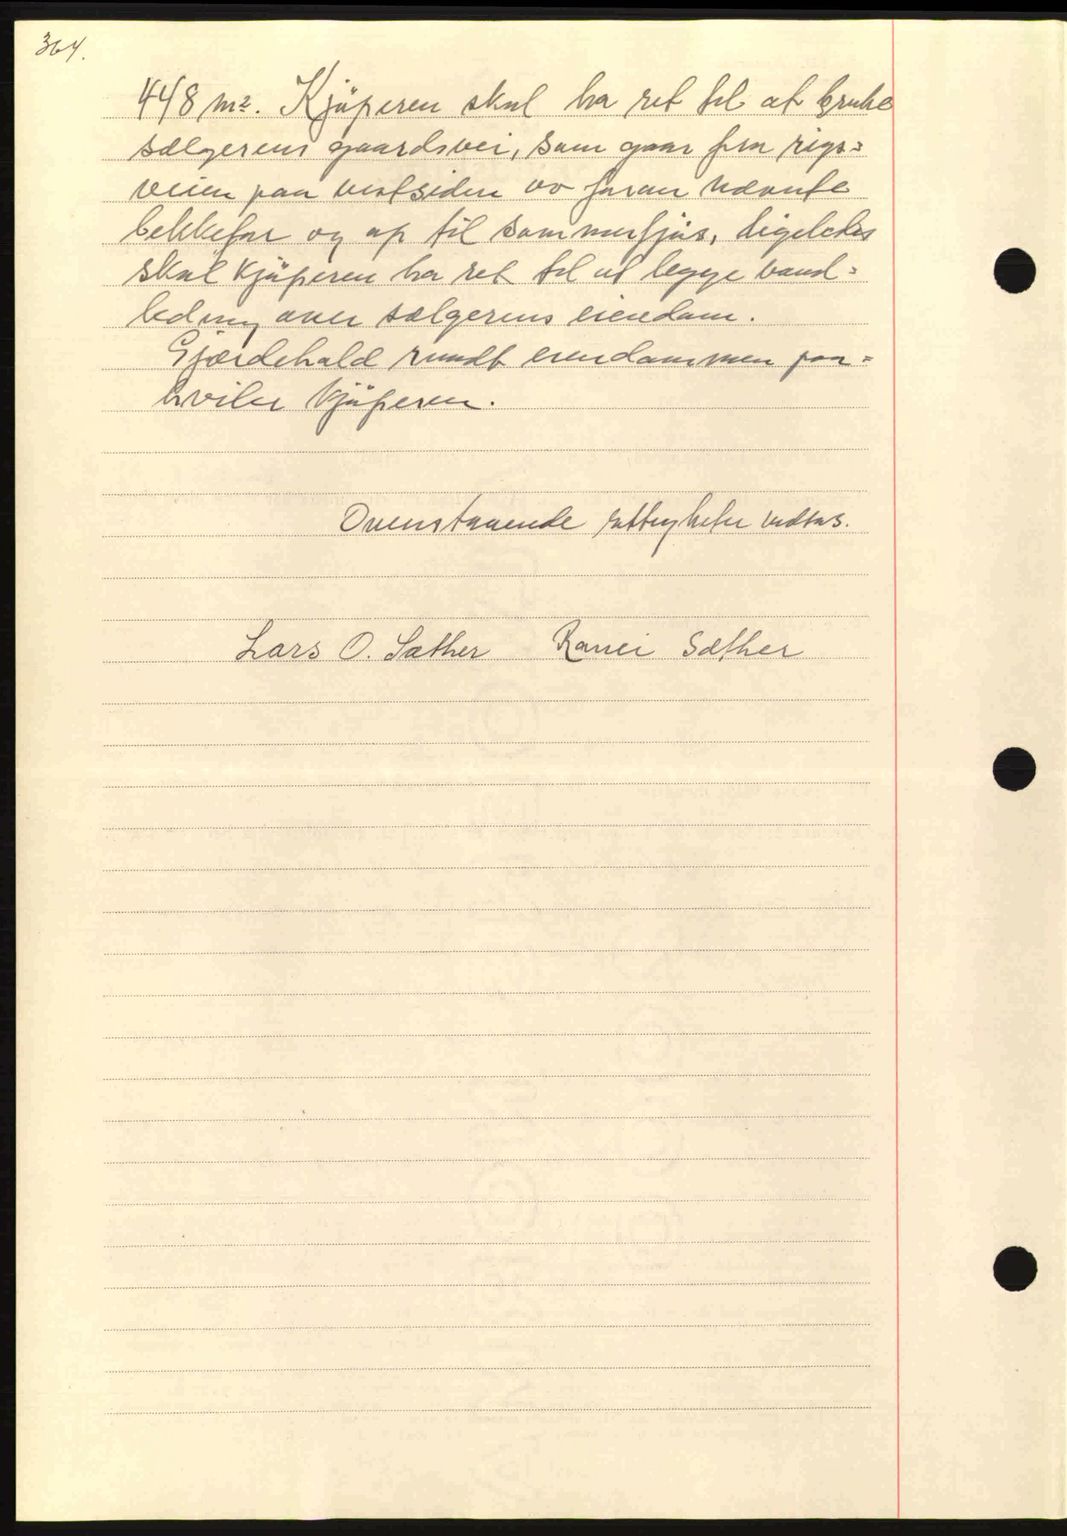 364.
448 m². Kjöperen skal ha ret til at bruke
sælgerens gaardsvei, som gaar fra rigs=
veien paa vestsiden av foran nævnte
bekkefar og op til sommerfjös, ligeledes
skal kjöperen ha ret til at legge vand=
ledning over sælgerens eiendom.
Gjærdehald rundt eiendommen paa=
hviler kjöperen.
Ovenstaaende rettigheter vedtas.
Lars O. Sæther Sæther